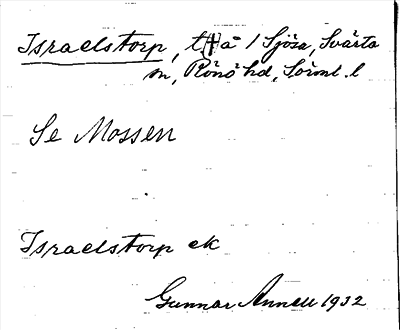 Israelstorp, t(†) å / Sjösa, Svärta
sn, Rönö hd, Sörml. l
Se Mossen
Israelstorp ek
Gunnar Annell 1932